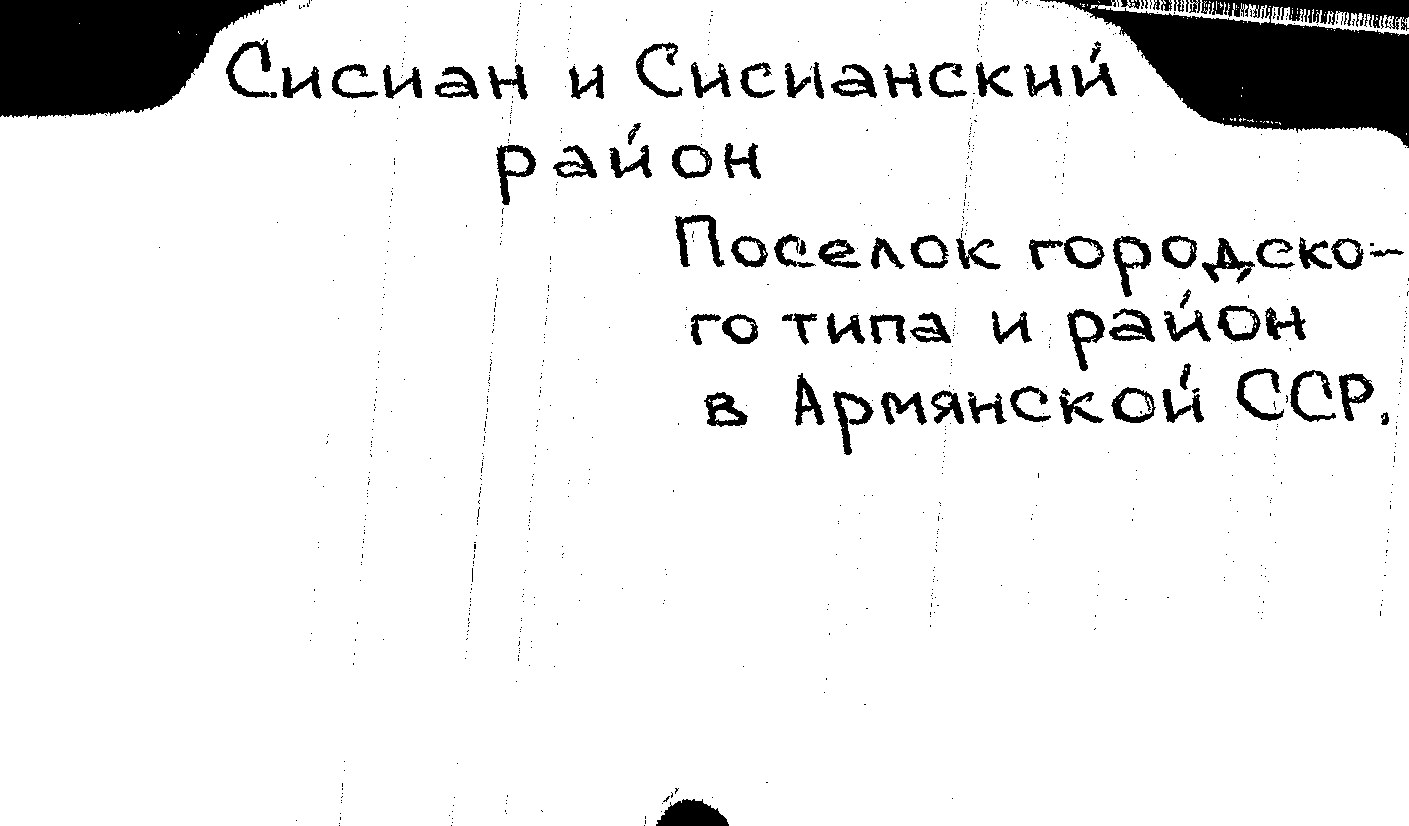 Сисиан и Сисианский
район
Поселок городско-
го типа и район
в Армянской ССР.